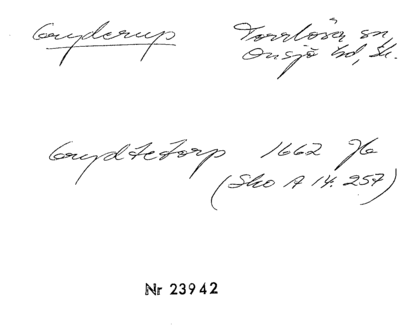 Gryderup Torrlösa sn,
Onsjö hd, Sk.
Grydtetorp 1662 Jb
(Sko A 14. 257)
Nr 23942